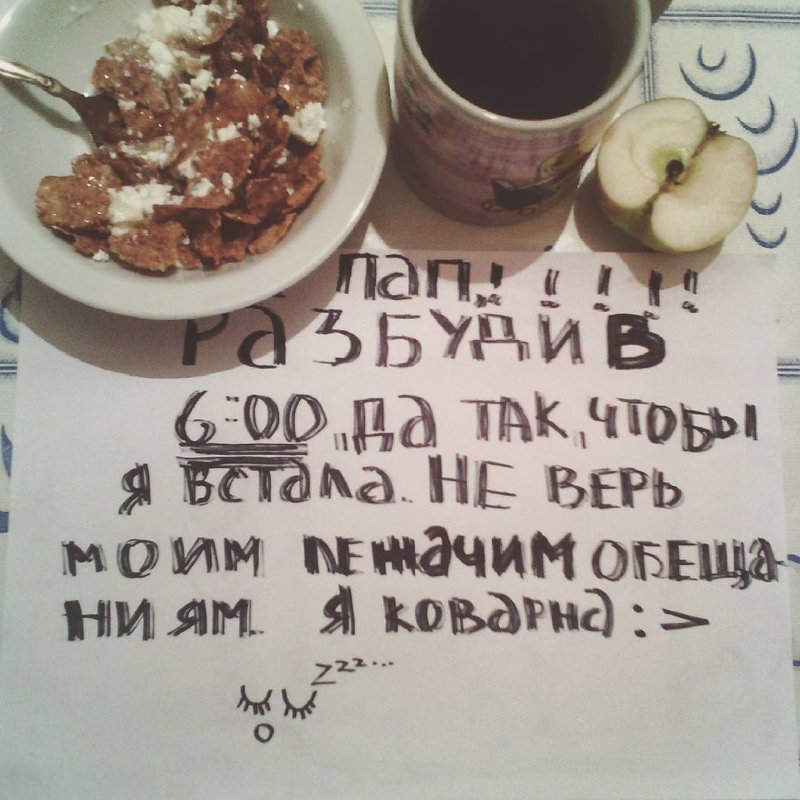 ПАП!!!!!
РАЗБУДИ В
6:00, ДА ТАК, ЧТОБЫ
Я ВСТАЛА. НЕ ВЕРЬ
МОИМ ЛЕЖАЧИМ ОБЕЩА-
НИЯМ. Я КОВАРНА :>
zzz...